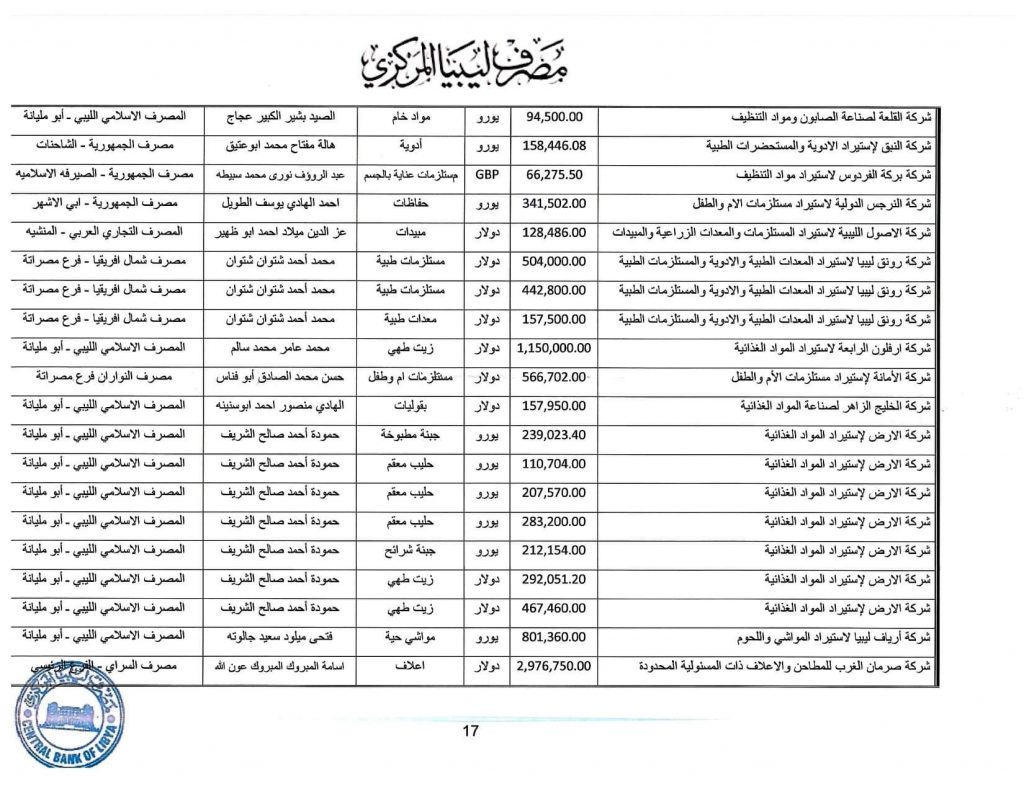 مصرف ليبيا المركزي
شركة القلعة لصناعة الصابون ومواد التنظيف 94,500.00 يورو مواد خام الصيد بشير الكبير عجاج المصرف الاسلامي الليبي - أبو مليانة
شركة النبق لإستيراد الادوية والمستحضرات الطبية 158,446.08 يورو أدوية هالة مفتاح محمد ابوعتيق مصرف الجمهورية - الشاحنات
شركة بركة الفردوس لاستيراد مواد التنظيف 66,275.50 GBP مستلزمات عناية بالجسم عبد الروؤف نورى محمد سبيطه مصرف الجمهورية - الصيرفه الاسلاميه
شركة النرجس الدولية لاستيراد مستلزمات الام والطفل 341,502.00 يورو حفاظات احمد الهادي يوسف الطويل مصرف الجمهورية - ابي الاشهر
شركة الاصول الليبية لاستيراد المستلزمات والمعدات الزراعية والمبيدات 128,486.00 دولار مبيدات عز الدين ميلاد احمد ابو ظهير المصرف التجاري العربي - المنشيه
شركة رونق ليبيا لاستيراد المعدات الطبية والادوية والمستلزمات الطبية 504,000.00 دولار مستلزمات طبية محمد أحمد شتوان شتوان مصرف شمال افريقيا - فرع مصراتة
شركة رونق ليبيا لاستيراد المعدات الطبية والادوية والمستلزمات الطبية 442,800.00 دولار مستلزمات طبية محمد أحمد شتوان شتوان مصرف شمال افريقيا - فرع مصراتة
شركة رونق ليبيا لاستيراد المعدات الطبية والادوية والمستلزمات الطبية 157,500.00 دولار معدات طبية محمد أحمد شتوان شتوان مصرف شمال افريقيا - فرع مصراتة
شركة ارفلون الرابعة لاستيراد المواد الغذائية 1,150,000.00 دولار زيت طهي محمد عامر محمد سالم المصرف الاسلامي الليبي - أبو مليانة
شركة الأمانة لإستيراد مستلزمات الأم والطفل 566,702.00 دولار مستلزمات ام وطفل حسن محمد الصادق أبو فناس مصرف النواران فرع مصراتة
شركة الخليج الزاهر لصناعة المواد الغذائية 157,950.00 دولار بقوليات الهادي منصور احمد ابوسنينه المصرف الاسلامي الليبي - أبو مليانة
شركة الارض لإستيراد المواد الغذائية 239,023.40 يورو جبنة مطبوخة حمودة أحمد صالح الشريف المصرف الاسلامي الليبي - أبو مليانة
شركة الارض لإستيراد المواد الغذائية 110,704.00 يورو حليب معقم حمودة أحمد صالح الشريف المصرف الاسلامي الليبي - أبو مليانة
شركة الارض لإستيراد المواد الغذائية 207,570.00 يورو حليب معقم حمودة أحمد صالح الشريف المصرف الاسلامي الليبي - أبو مليانة
شركة الارض لإستيراد المواد الغذائية 283,200.00 يورو حليب معقم حمودة أحمد صالح الشريف المصرف الاسلامي الليبي - أبو مليانة
شركة الارض لإستيراد المواد الغذائية 212,154.00 يورو جبنة شرائح حمودة أحمد صالح الشريف المصرف الاسلامي الليبي - أبو مليانة
شركة الارض لإستيراد المواد الغذائية 292,051.20 دولار زيت طهي حمودة أحمد صالح الشريف المصرف الاسلامي الليبي - أبو مليانة
شركة الارض لإستيراد المواد الغذائية 467,460.00 دولار زيت طهي حمودة أحمد صالح الشريف المصرف الاسلامي الليبي - أبو مليانة
شركة أرياف ليبيا لاستيراد المواشي واللحوم 801,360.00 يورو مواشي حية فتحى ميلود سعيد جالوته المصرف الاسلامي الليبي - أبو مليانة
شركة صرمان الغرب للمطاحن والاعلاف ذات المسئولية المحدودة 2,976,750.00 دولار اعلاف اسامة المبروك المبروك عون الله مصرف السراي - الفرع الرئيسي
17
مصرف ليبيا المركزي
CENTRAL BANK OF LIBYA